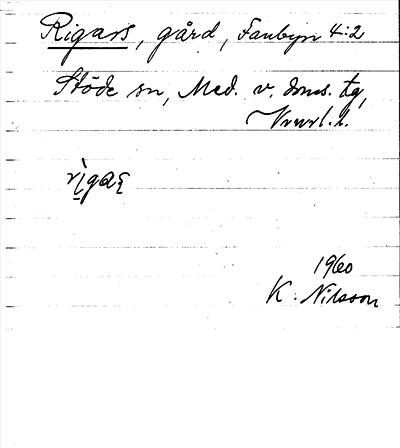 Rigars, gård, Fanbyn 4:2
Stöde sn, Med. v. doms. tg,
Vnrrl. l.
rìgaꞩ
1960
K. Nilsson